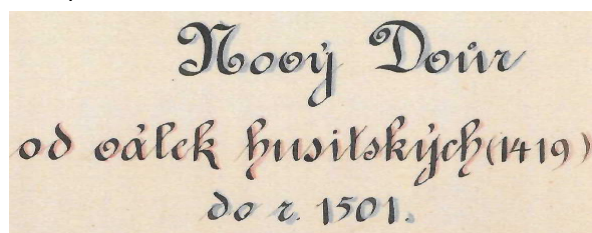 Nový Dvůr
od válek husitských (1419)
do r. 1501.